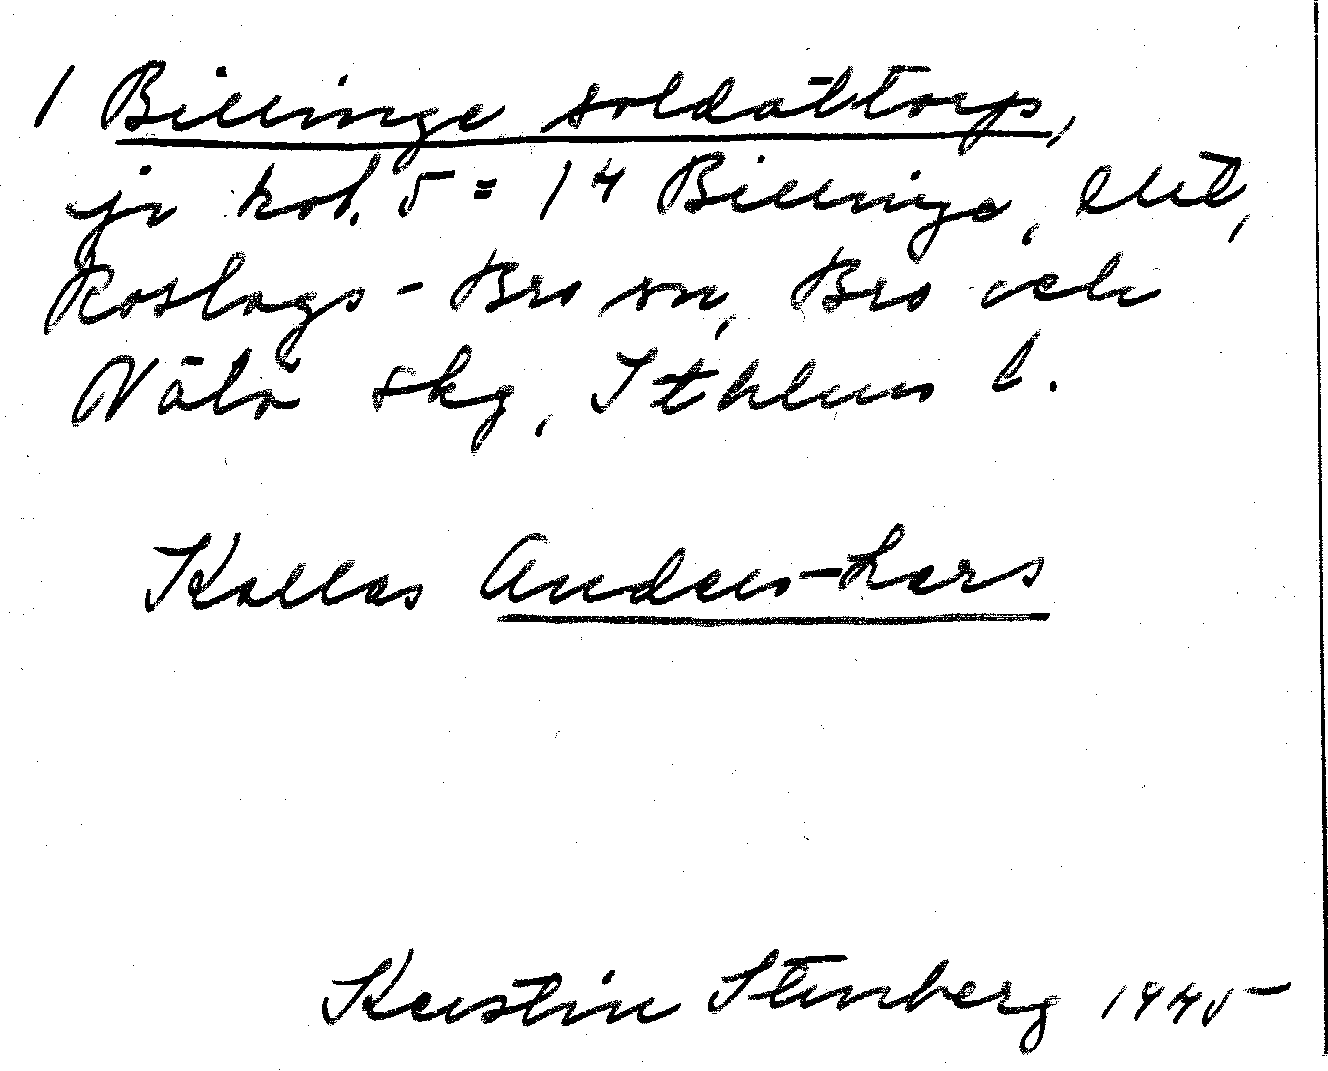 1 Billinge soldattorp,
jr kol. 5 = 14 Billinge,
Roslags-Bro sn, Bro och
Vätö skg, Sthlms l.
Kallas Anders-Lars
Kerstin Stenberg 1945